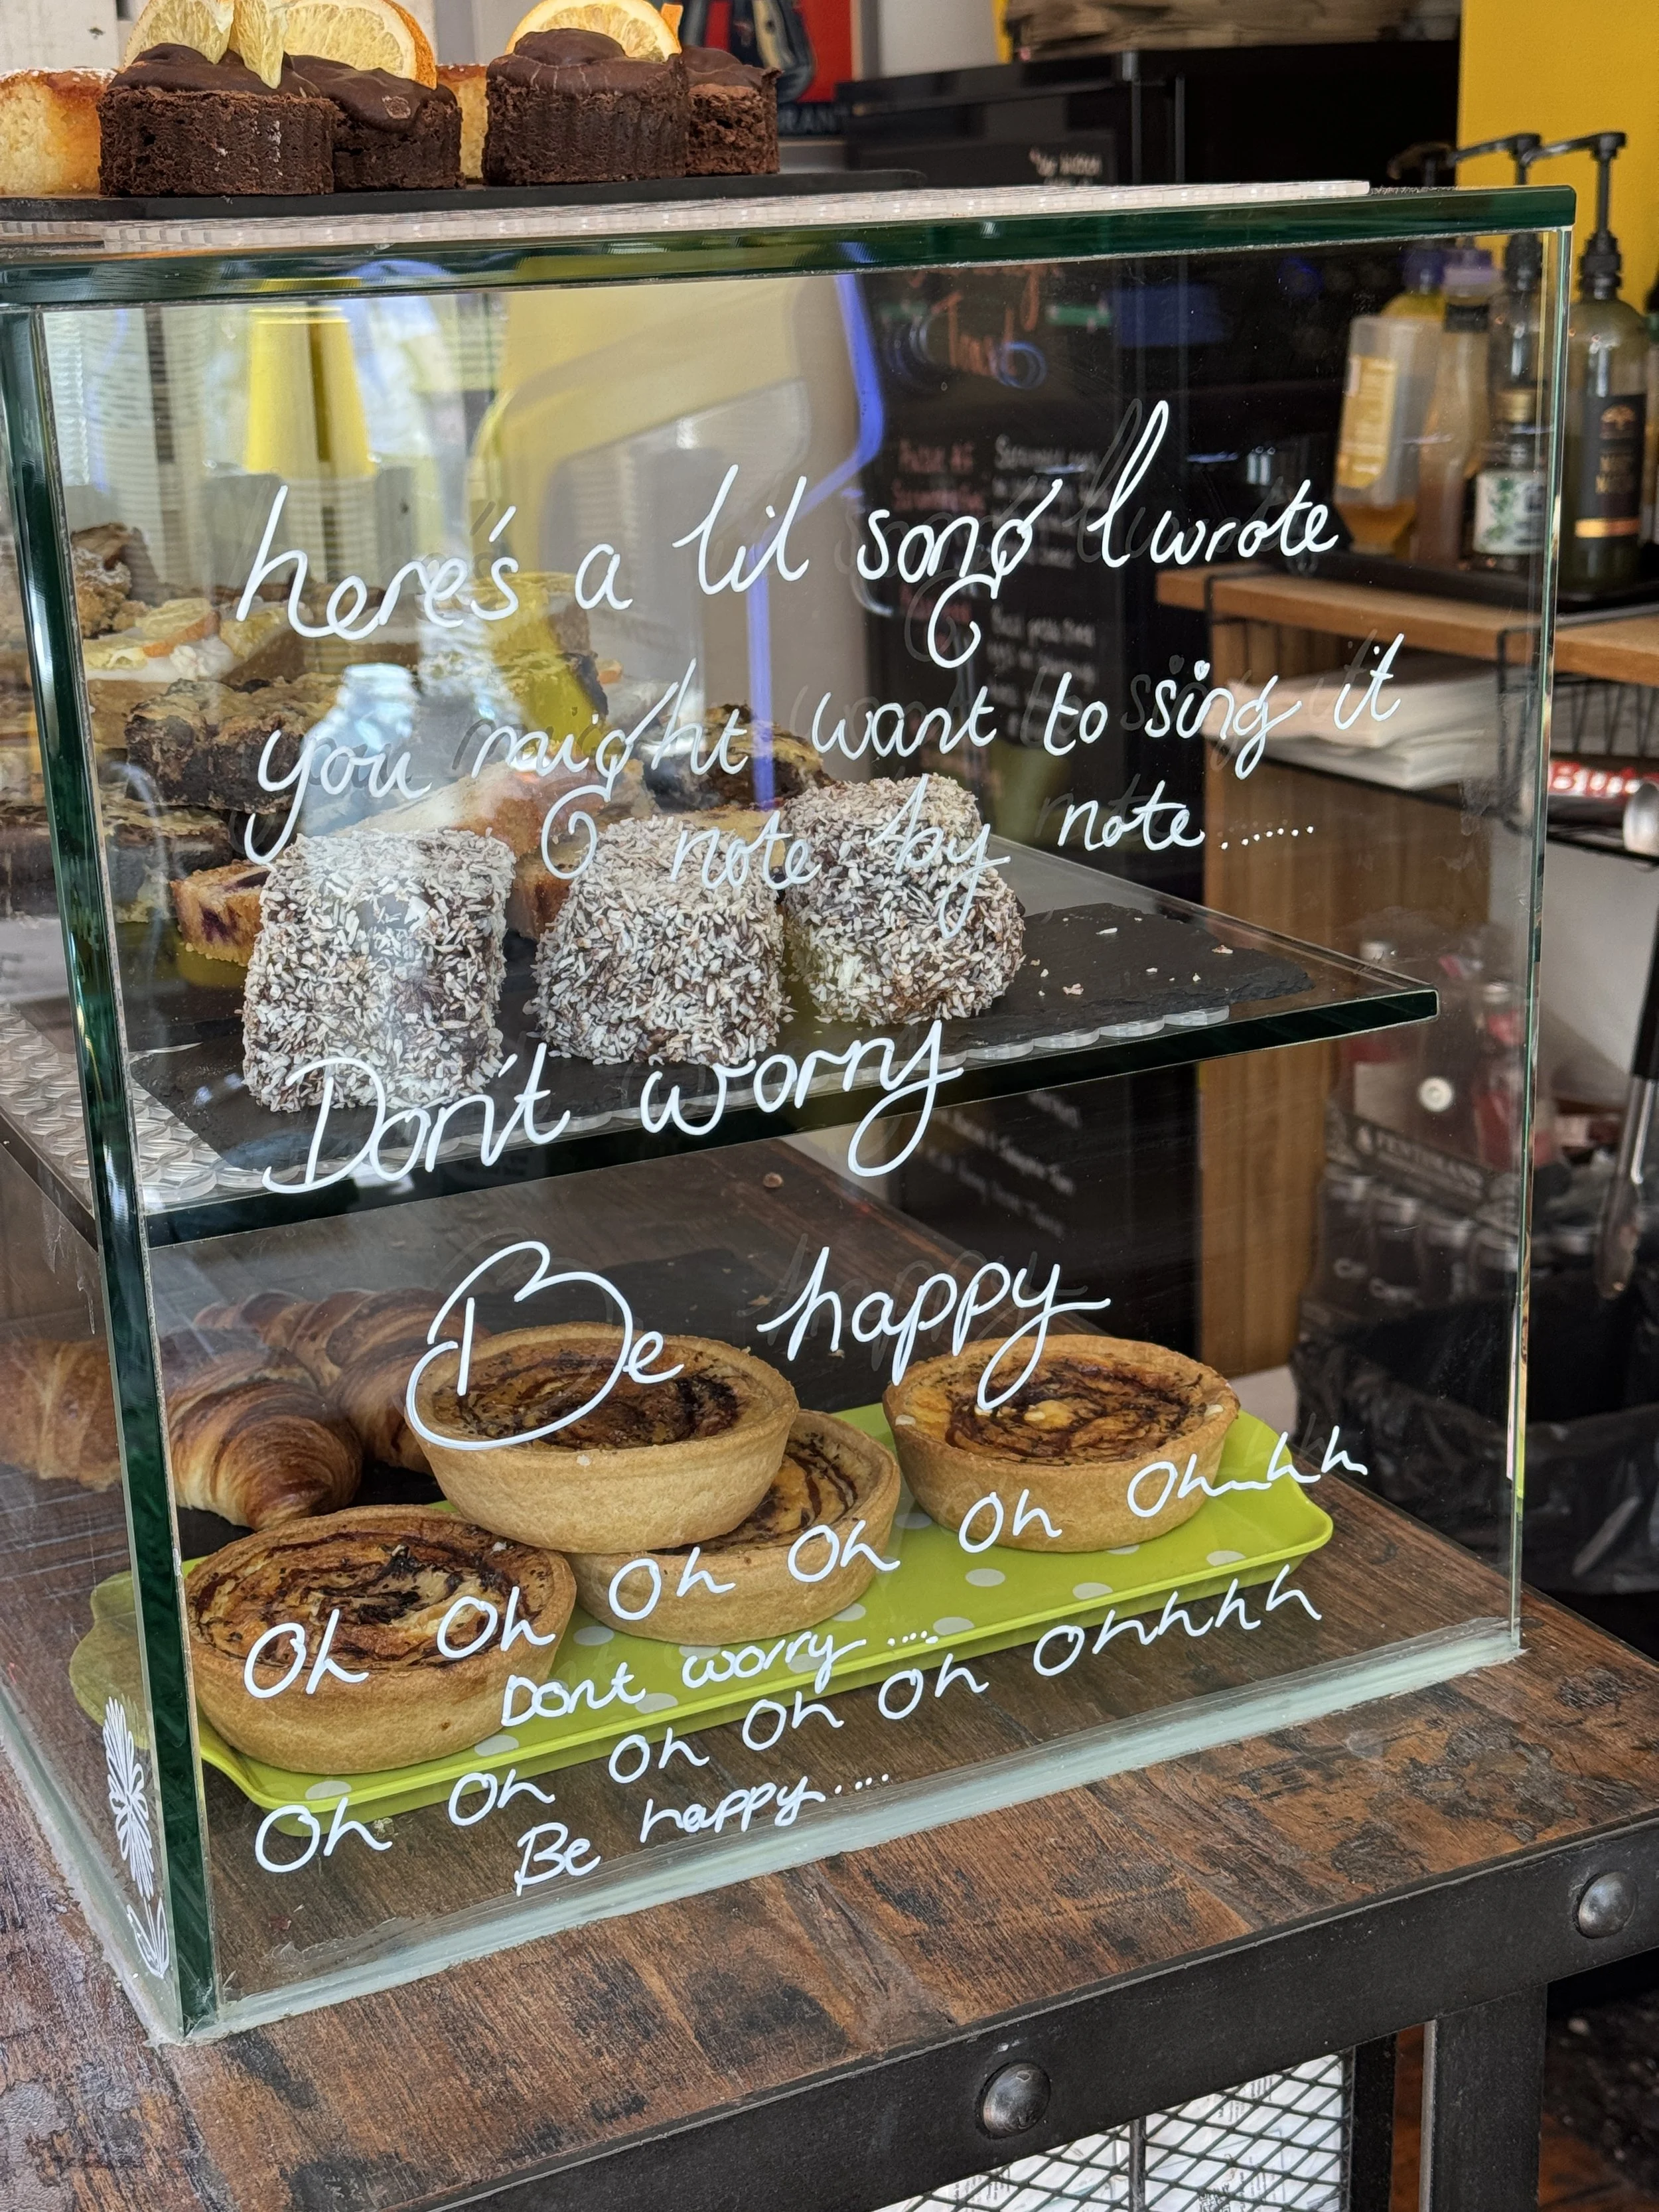 here's a lil song I wrote
you might want to sing it
note by note......
Don't worry
Be happy
Oh Oh Oh Oh Oh Ohhh
Dont worry ....
Oh Oh Oh Oh Oh Ohhhh
Be happy....
FENTIMANS